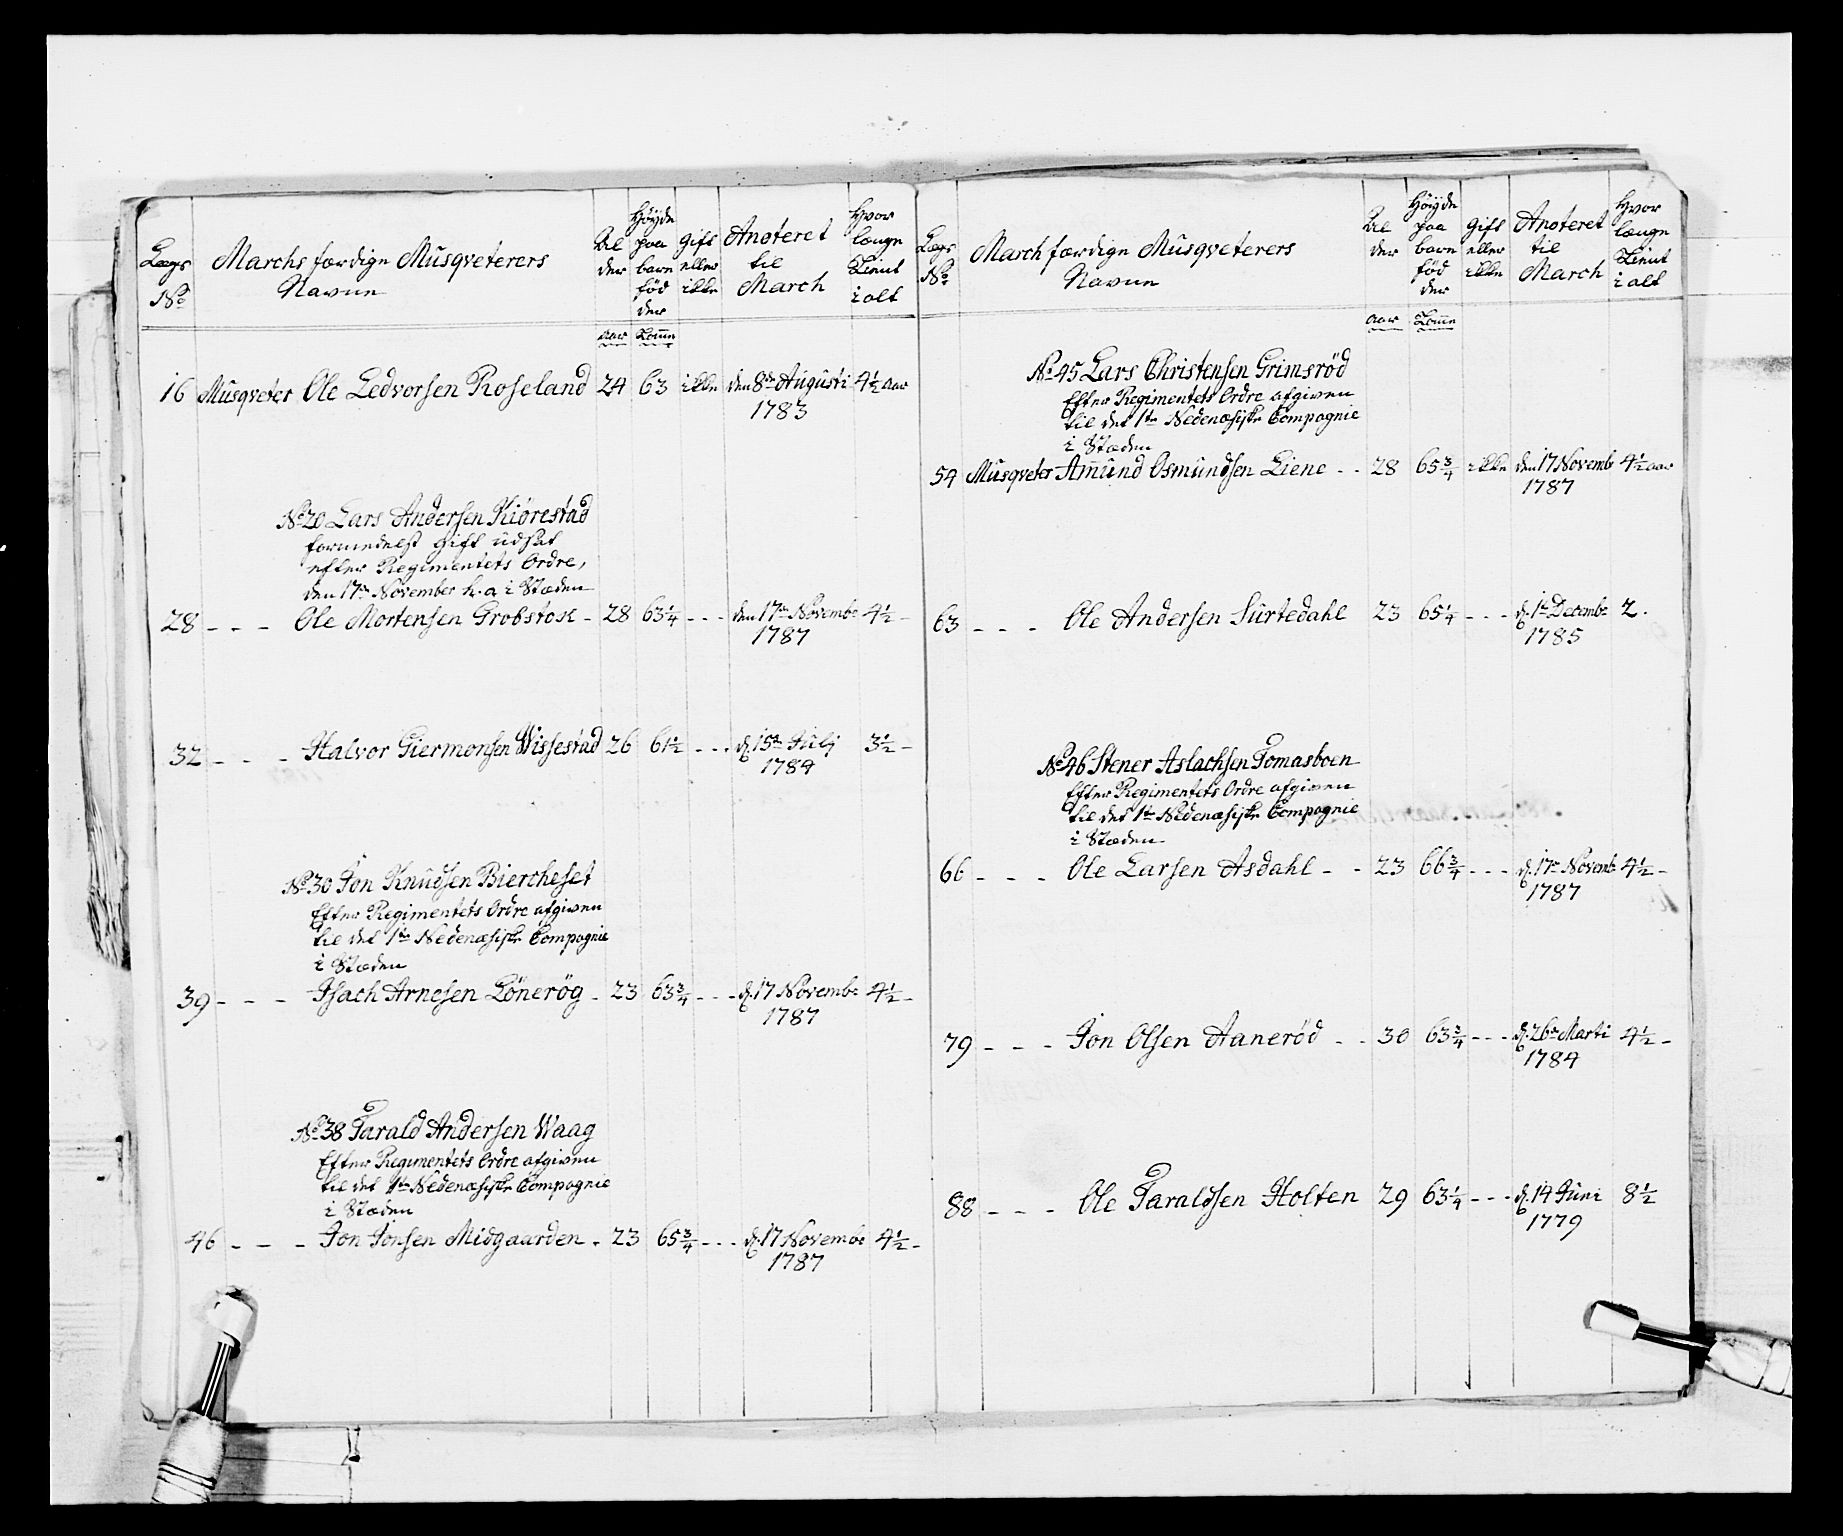 Lægs No | Marchs færdige Müsqveterers Navne | Al der | Høyde paa bare fød der | Gift eller ikke | Anoteret til March | Hvor længe Tient i alt
aar | Tomme
16 Müsqveter Ole Ledvorsen Roseland 24 63 ikke den 8de Augusti 4½ aar
1783
No 20 Lars Andersen Kiörestad
formedelst gift üdsat
efter Regimentets Ordre,
den 17de November h. a. i Stæden
28 - - - Ole Mortensen Grobstok - 28 63¼ - - - den 17de Novembr 4½ -
1787
32 - - - Halvor Giermonsen Wissestad 26 61½ - - - d. 15de Julj 3½ -
1784
No 30 Jon Knüdsen Biercheset
Efter Regimentets Ordre afgiven
til det 1te Nedenæsiske Compagnie
i Stæden
39 - - - Isach Arnesen Lönerög - 23 63¾ - - - d. 17 Novembr 4½ -
1787
No 38 Tarald Andersen Waag
Efter Regimentets Ordre afgiven
til det 1te Nedenæsiske Compagnie
i Stæden
46 - - - Jon Jonsen Midgaarden - 23 65¾ - - - d. 17 Novembr 4½ -
1787
Lægs No | March færdige Müsqveterers Navne | Al der | Høyde paa bare fød der | Gift eller ikke | Anoteret til March | Hvor længe Tient i alt
aar | Tomme
No 45 Lars Christensen Grimsröd
Efter Regimentets Ordre afgiven
til det 1te Nedenæsiske Compagnie
i Stæden
54 Müsqveter Amünd Osmündsen Liene - - 28 65¾ ikke den 17 Novemb 4½ aar
1787
63 - - - Ole Andersen Sürtedahl 23 65¼ - - - d. 1te Decembr 2.
1785
No 46 Stener Aslachsen Tomasboen
Efter Regimentets Ordre afgiven
til det 1te Nedenæsiske Compagnie
i Stæden
66 - - - Ole Larsen Asdahl - - 23 66¾ - - - d. 17de Novemb 4½ -
1787
79 - - - Jon Olsen Aaneröd - - 30 63¾ - - - d. 26de Marti 4½ -
1784
88 - - - Ole Taraldsen Holten 29 63¼ - - - d. 14 Jüni 8½
1779